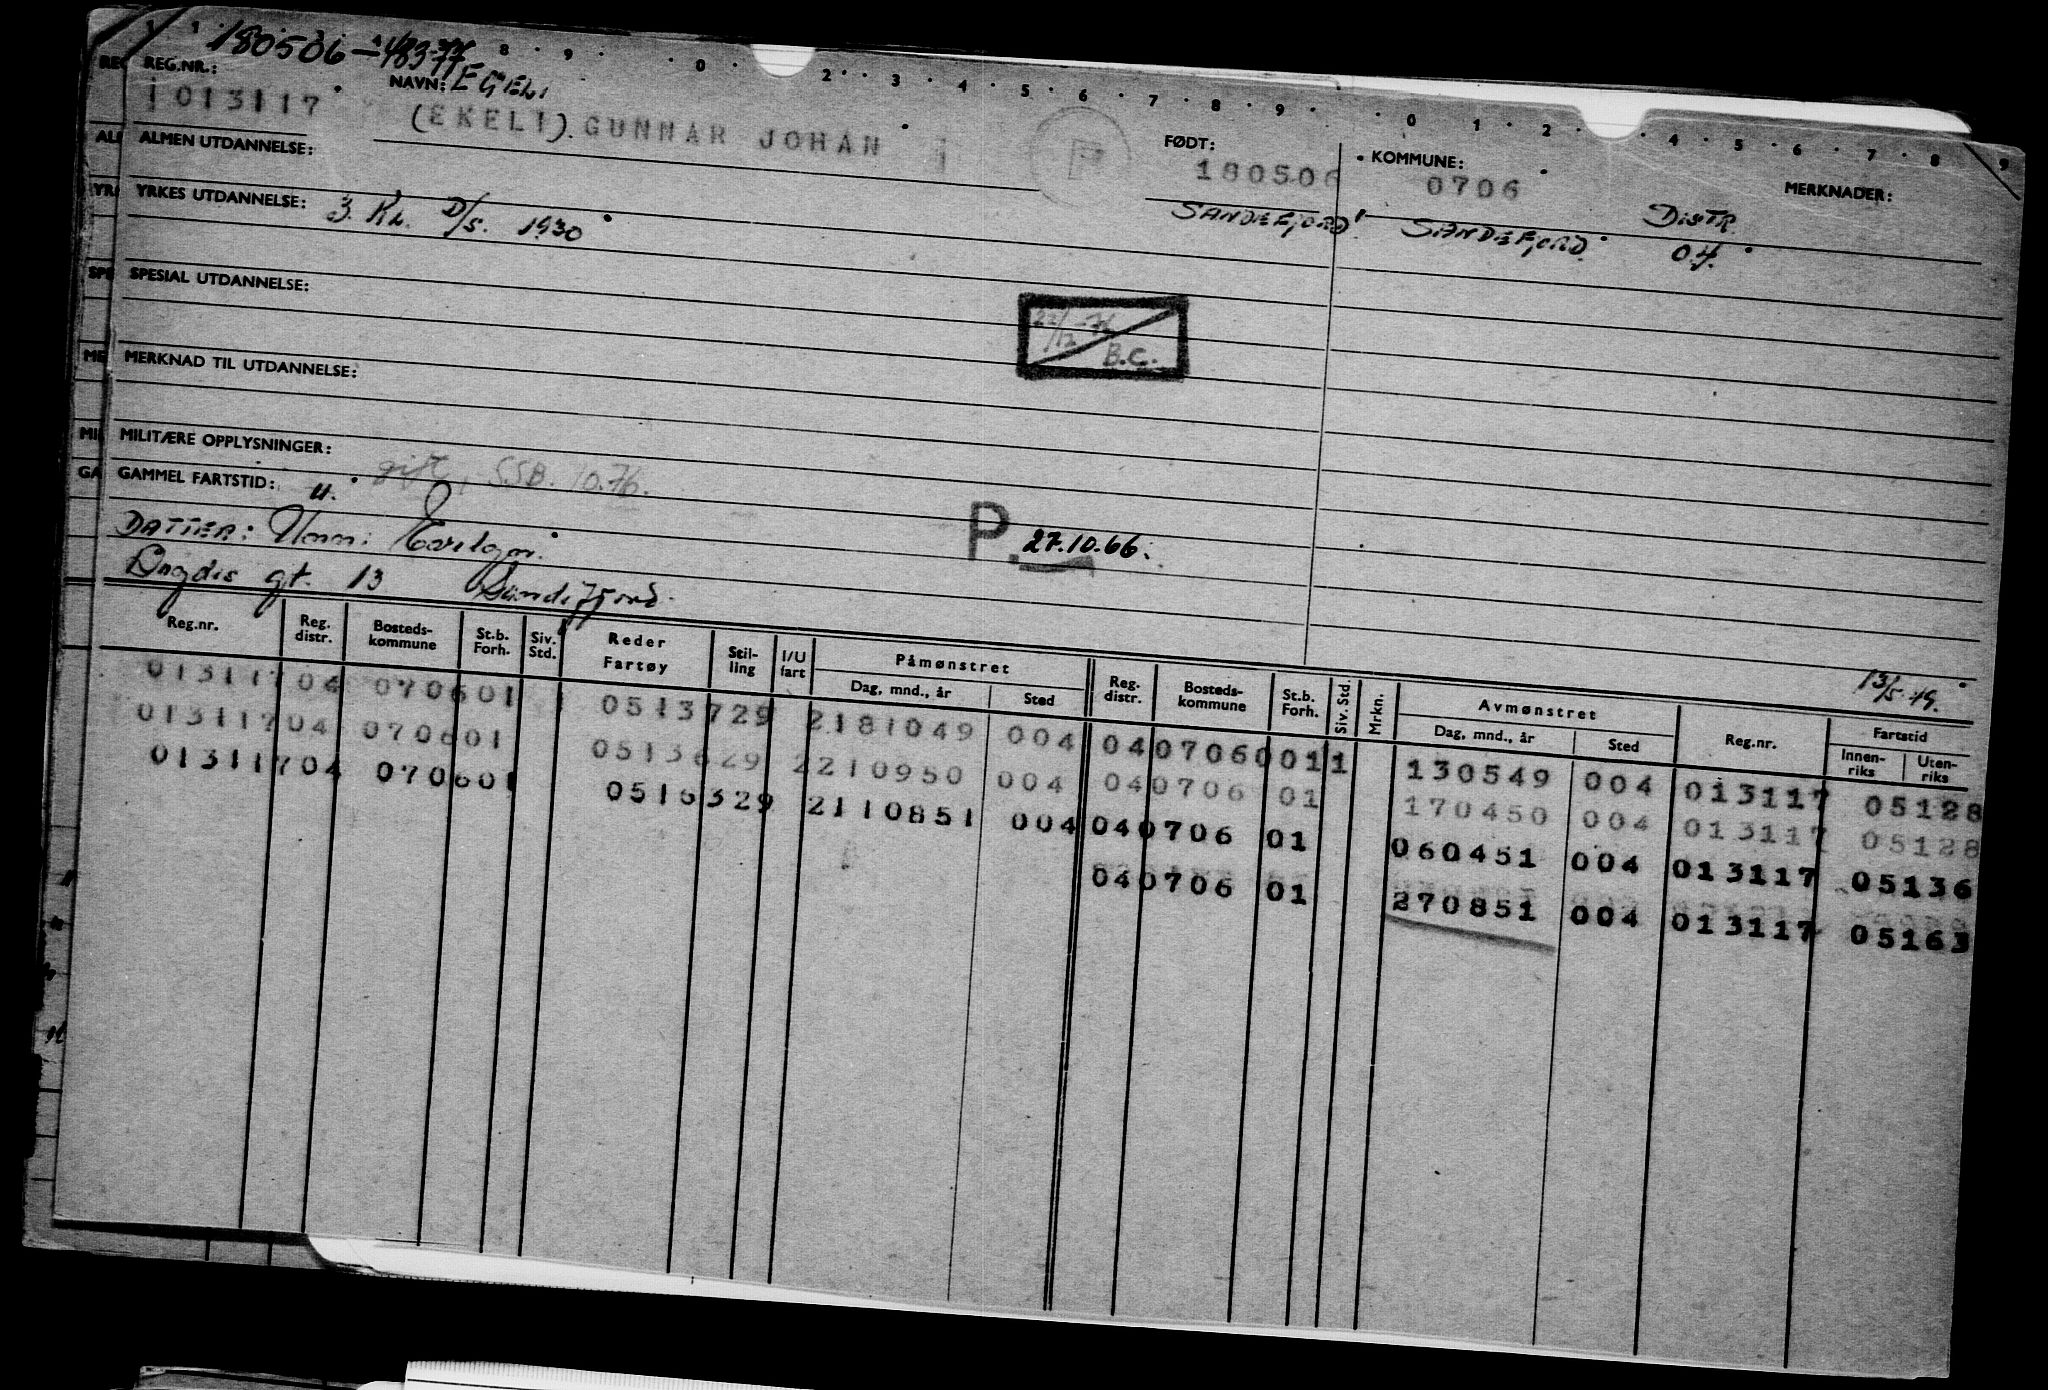 180506 -
8 · 9 · · 0 · 2 · · 3 · 4 · 5 · 6 · 7 · 8 · 9 · · 0 1 · 2 · 4 · 5 · 6 · 7 · 8 9
REG.NR.:
NAVN: EGELI
013117
(EKELI). GUNNAR JOHAN
P
FØDT:
180506
KOMMUNE:
0706
MERKNADER:
ALMEN UTDANNELSE:
SANDEFJORD
SANDEFJORD
DISTR.
04.
YRKES UTDANNELSE: 3. KL. D/S. 1930
SPESIAL UTDANNELSE:
22/12-76
B.C.
MERKNAD TIL UTDANNELSE:
MILITÆRE OPPLYSNINGER:
GAMMEL FARTSTID: U. gift, SSB. 10.76.
DATTER: Unni
P. 27.10.66.
gt. 13 Sandefjord.
13/5-49.
Reg.nr. Reg. distr. Bosteds-kommune St.b. Forh. Siv. Std. Reder Fartøy Stil-ling I/U fart Påmønstret Dag, mnd., år Sted Reg. distr. Bosteds-kommune St.b. Forh. Siv. Std. Mrkn. Avmønstret Dag, mnd., år Sted Reg.nr. Fartstid Innen-riks Uten-riks
013117 04 0706 01 0513729 2181049 004 04 0706 0011 130549 004 013117 05128
013117 04 0706 01 0513629 2210950 004 04 0706 01 170450 004 013117 05128
013117 04 0706 01 0516329 2110851 004 04 0706 01 060451 004 013117 05136
04 0706 01 270851 004 013117 05163